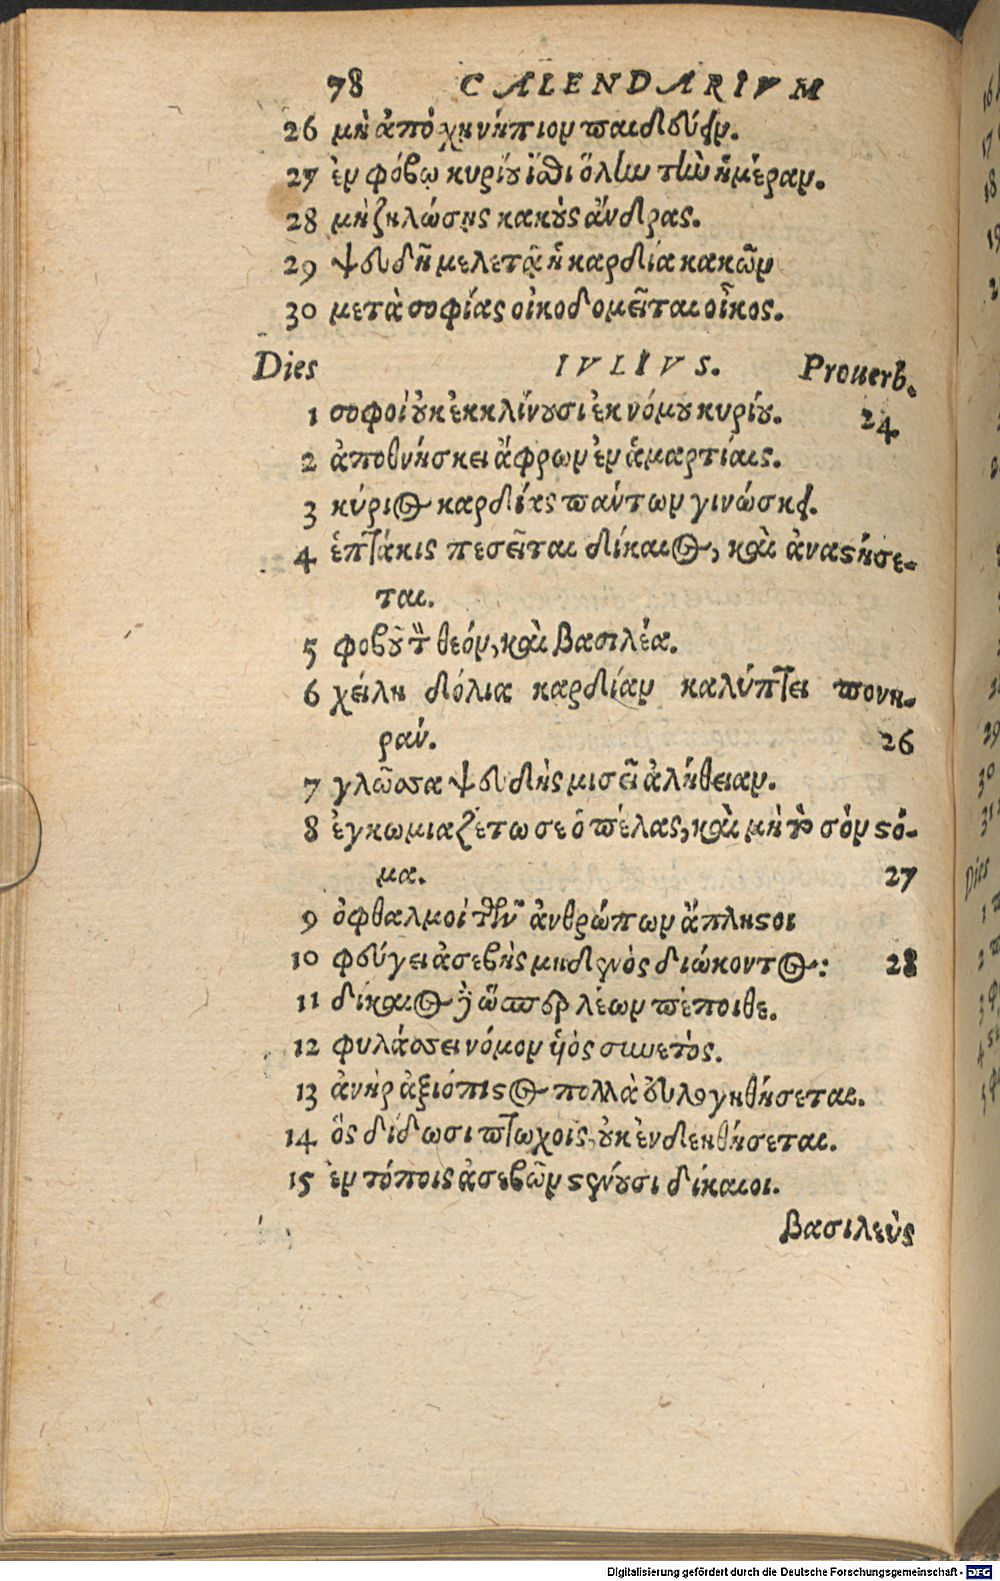 78 CALENDARIVM
26 μὴ ἀπόχη νήπιον παιδεύειν.
27 ἐν φόβῳ κυρίου ἴσθι ὅλην τὴν ἡμέραν.
28 μὴ ζηλώσῃς κακοὺς ἄνδρας.
29 ψευδῆ μελετᾷ ἡ καρδία κακῶν
30 μετὰ σοφίας οἰκοδομεῖται οἶκος.
Dies IVLIVS. Prouerb.
1 σοφοὶ οὐκ ἐκκλίνουσι ἐκ νόμου κυρίου. 24.
2 ἀποθνήσκει ἄφρων ἐν ἁμαρτίαις.
3 κύριος καρδίας πάντων γινώσκει.
4 ἑπτάκις πεσεῖται δίκαιος, καὶ ἀναστήσε-
ται.
5 φοβοῦ τὸν θεόν, καὶ βασιλέα.
6 χείλη δόλια καρδίαν καλύπτει πονη-
ράν. 26
7 γλῶσσα ψευδὴς μισεῖ ἀλήθειαν.
8 ἐγκωμιαζέτω σε ὁ πέλας, καὶ μὴ τὸ σὸν στό-
μα. 27
9 ὀφθαλμοὶ τῶν ἀνθρώπων ἄπληστοι
10 φεύγει ἀσεβὴς μηδενὸς διώκοντος: 28
11 δίκαιος ὥσπερ λέων πέποιθε.
12 φυλάσσει νόμον υἱὸς συνετός.
13 ἀνὴρ ἀξιόπιστος πολλὰ εὐλογηθήσεται.
14 ὃς δίδωσι πτωχοῖς, οὐκ ἐνδεηθήσεται.
15 ἐν τόποις ἀσεβῶν στένουσι δίκαιοι.
βασιλεὺς
Digitalisierung gefördert durch die Deutsche Forschungsgemeinschaft - DFG